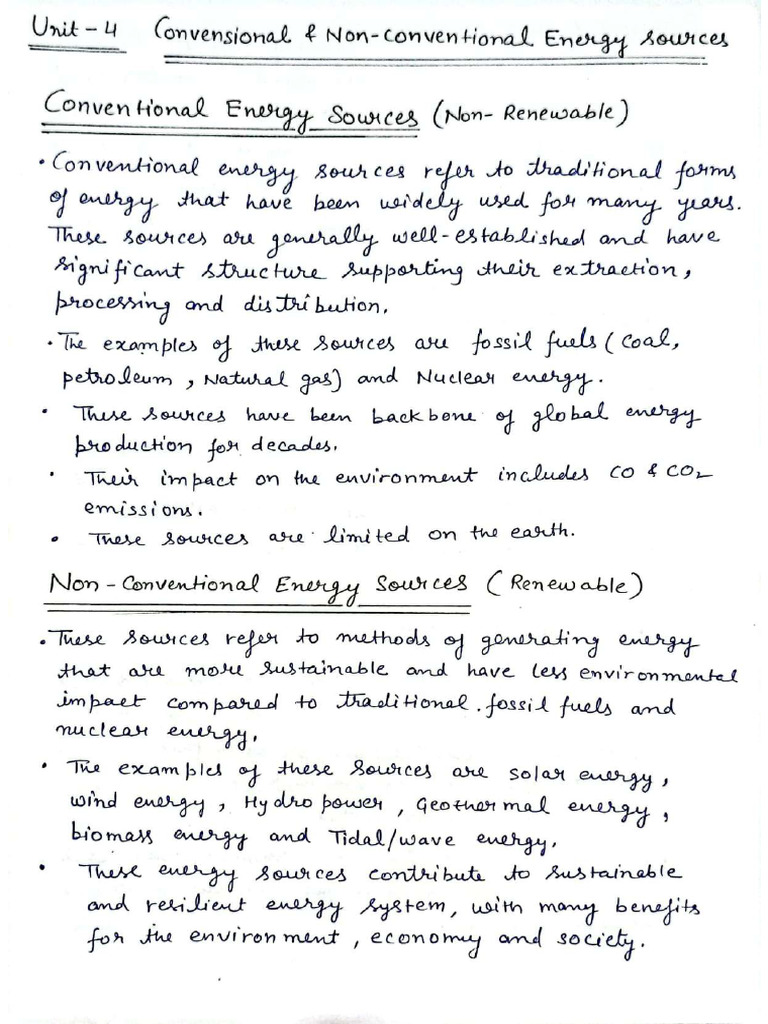 Unit-4 Convensional & Non-conventional Energy sources
Conventional Energy Sources (Non-Renewable)
• Conventional energy sources refer to traditional forms
of energy that have been widely used for many years.
These sources are generally well-established and have
significant structure supporting their extraction,
processing and distribution.
• The examples of these sources are fossil fuels (coal,
petroleum, Natural gas) and Nuclear energy.
• These sources have been backbone of global energy
production for decades.
• Their impact on the environment includes CO & CO2
emissions.
• These sources are limited on the earth.
Non-Conventional Energy Sources (Renewable)
• These sources refer to methods of generating energy
that are more sustainable and have less environmental
impact compared to traditional.fossil fuels and
nuclear energy.
• The examples of these sources are solar energy,
wind energy, Hydro power, Geothermal energy,
biomass energy and Tidal/wave energy.
• These energy sources contribute to sustainable
and resilient energy system, with many benefits
for the environment, economy and society.